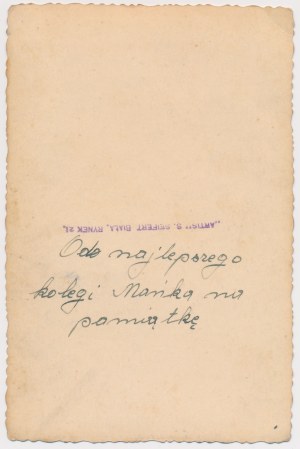 „ARTOM” S. SEIFERT BIAŁA, RYNEK 21,
Ode najlepszego
kolegi Mańka na
pamiątkę